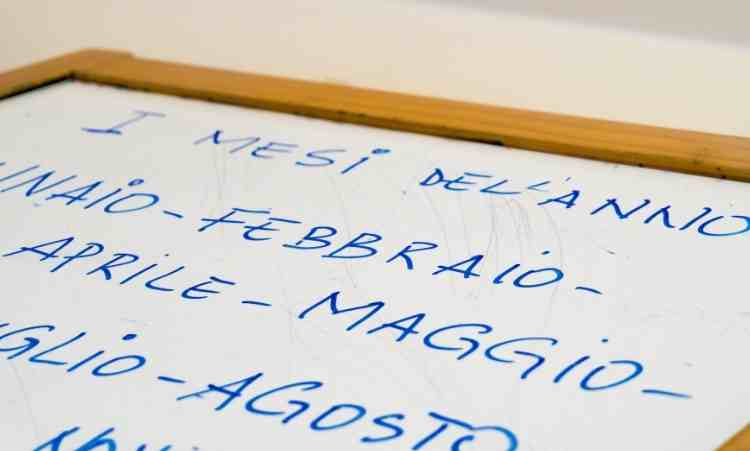 I MESI DELL'ANNO
NNAIO - FEBBRAIO -
APRILE - MAGGIO -
GLIO - AGOSTO